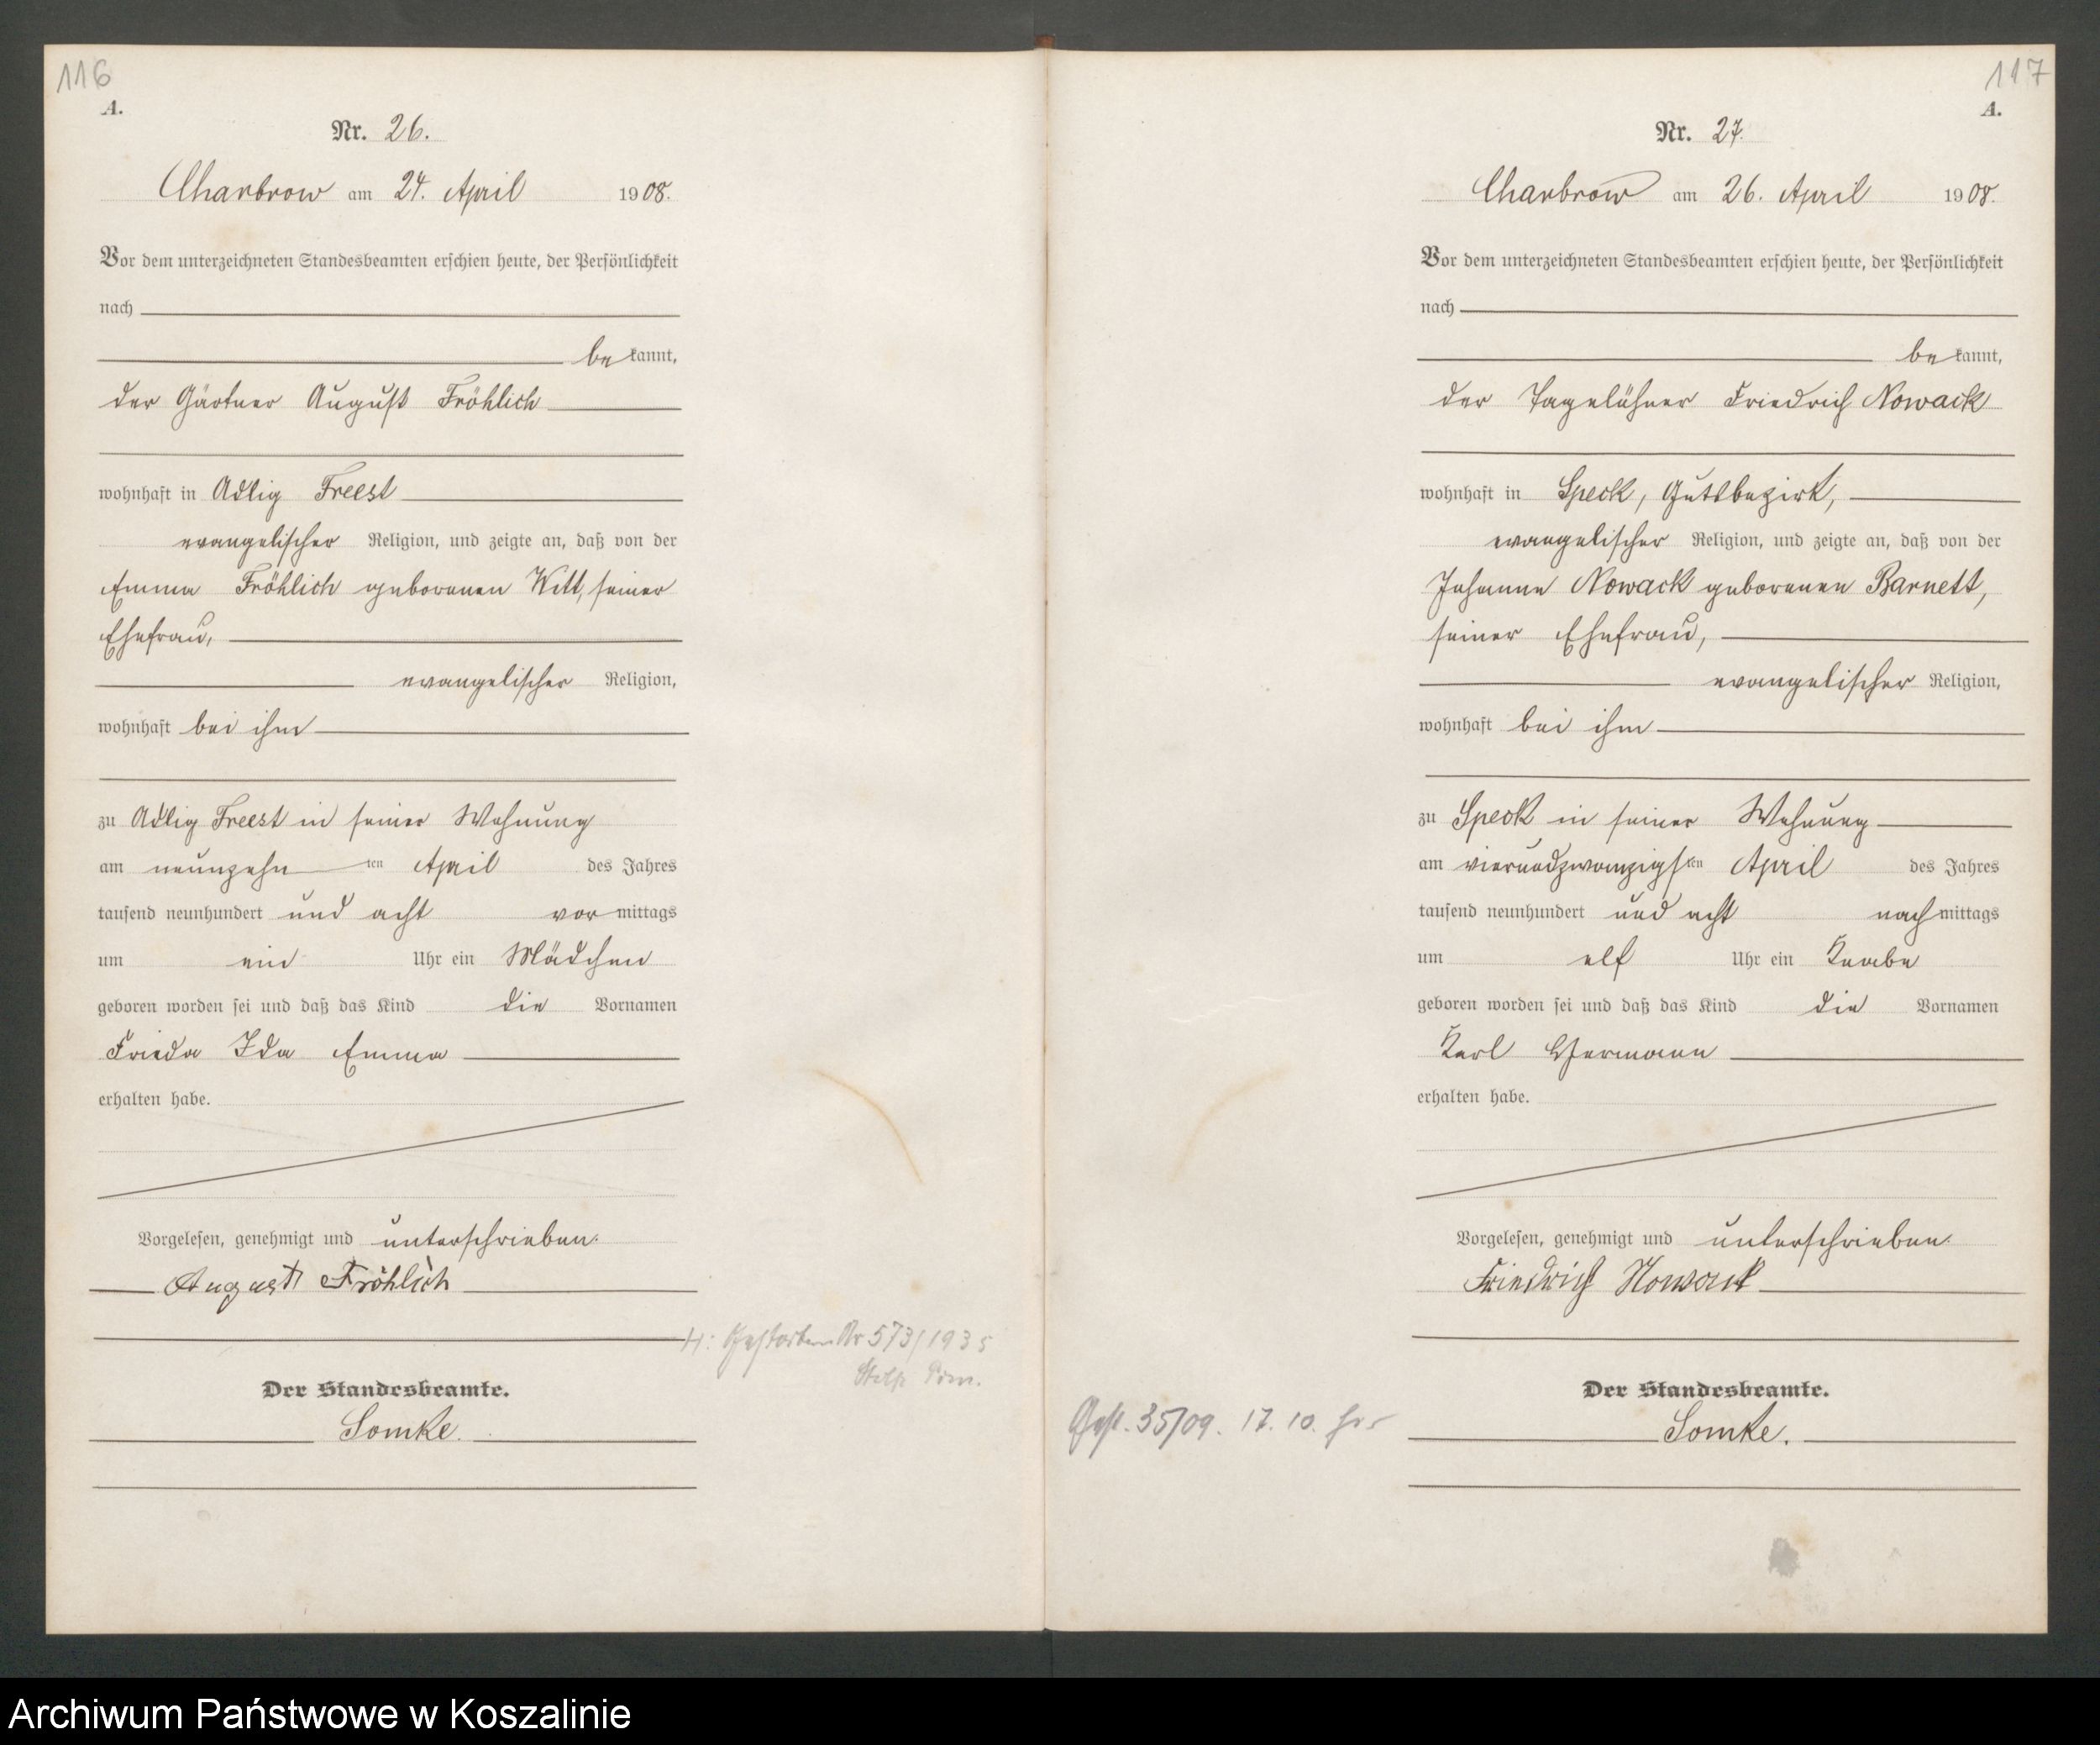 116
A.
Nr. 26.
Charbrow am 24. April 1908.
Vor dem unterzeichneten Standesbeamten erschien heute, der Persönlichkeit
nach
bekannt,
der Gärtner August Fröhlich
wohnhaft in Adlig Freest
evangelischer Religion, und zeigte an, daß von der
Emma Fröhlich geborenen Witt, seiner
Ehefrau,
evangelischer Religion,
wohnhaft bei ihm
zu Adlig Freest in seiner Wohnung
am neunzehnten April des Jahres
tausend neunhundert und acht vormittags
um ein Uhr ein Mädchen
geboren worden sei und daß das Kind die Vornamen
Frieda Ida Emma
erhalten habe.
Vorgelesen, genehmigt und unterschrieben.
August Fröhlich
H: Gestorben Nr 573/1935
Stolp Pom.
Der Standesbeamte.
Somke.
117
A.
Nr. 27.
Charbrow am 26. April 1908.
Vor dem unterzeichneten Standesbeamten erschien heute, der Persönlichkeit
nach
bekannt,
der Tagelöhner Friedrich Nowack
wohnhaft in Speck, Gutsbezirk,
evangelischer Religion, und zeigte an, daß von der
Johanne Nowack geborenen Barnett,
seiner Ehefrau,
evangelischer Religion,
wohnhaft bei ihm
zu Speck in seiner Wohnung
am vierundzwanzigsten April des Jahres
tausend neunhundert und acht nachmittags
um elf Uhr ein Knabe
geboren worden sei und daß das Kind die Vornamen
Karl Hermann
erhalten habe.
Vorgelesen, genehmigt und unterschrieben.
Friedrich Nowack
Gest. 35/09. 17. 10.
Der Standesbeamte.
Somke.
Archiwum Państwowe w Koszalinie